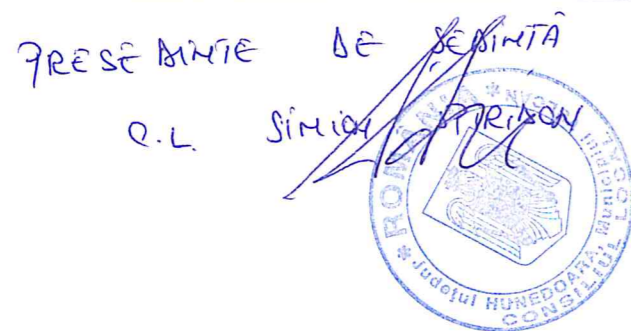 PRESEDINTE DE ŞEDINTĂ
C.L. SIMION
* ROMÂNIA *
Judeţul HUNEDOARA, Municipiul
CONSILIUL LOCAL